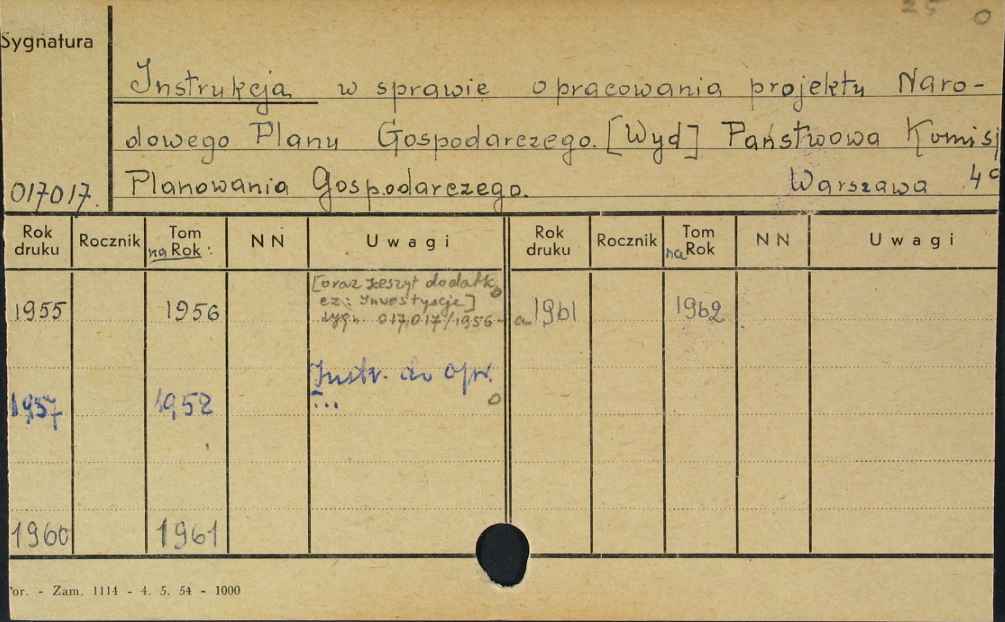 25 0
Sygnatura
Instrukcja w sprawie opracowania projektu Naro-
dowego Planu Gospodarczego. [Wyd] Państwowa Komisj
017017. Planowania Gospodarczego. Warszawa 4°
Rok druku Rocznik Tom na Rok: NN Uwagi Rok druku Rocznik Tom na Rok NN Uwagi
[oraz zeszyt dodatk.
cz: Inwestycje]
1955 1956 sygn. 017,017/1956-a 1961 1962
Instr. do opr.
1957 1952 ...
1960 1961
or. - Zam. 1114 - 4. 5. 54 - 1000